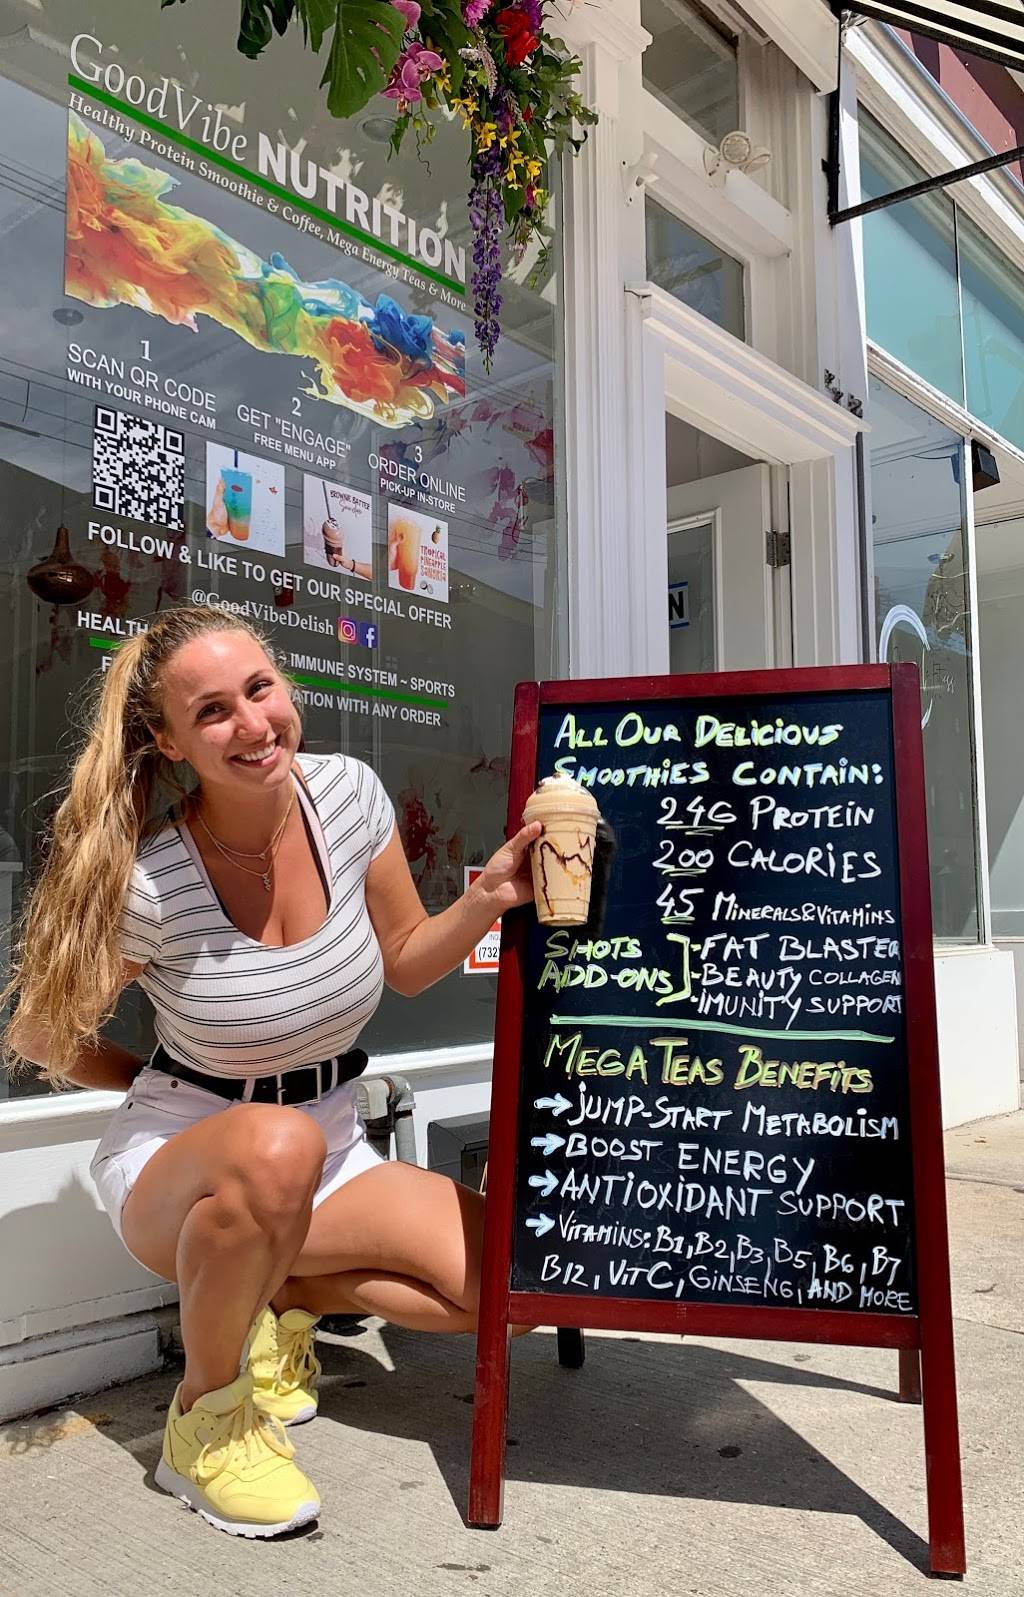 GoodVibe NUTRITION
Healthy Protein Smoothie & Coffee, Mega Energy Teas & More
1
SCAN QR CODE
WITH YOUR PHONE CAM
2
GET "ENGAGE"
FREE MENU APP
3
ORDER ONLINE
PICK-UP IN-STORE
TROPICAL
PINEAPPLE
FOLLOW & LIKE TO GET OUR SPECIAL OFFER
@GoodVibeDelish
HEALTH
IMMUNE SYSTEM ~ SPORTS
WITH ANY ORDER
(732)
ALL OUR DELICIOUS
SMOOTHIES CONTAIN:
24G PROTEIN
200 CALORIES
45 MINERALS&VITAMINS
SHOTS
ADD-ONS
-FAT BLASTER
-BEAUTY COLLAGEN
-IMUNITY SUPPORT
MEGA TEAS BENEFITS
→JUMP-START METABOLISM
→BOOST ENERGY
→ANTIOXIDANT SUPPORT
→VITAMINS: B1, B2, B3, B5, B6, B7
B12, VIT C, GINSENG, AND MORE